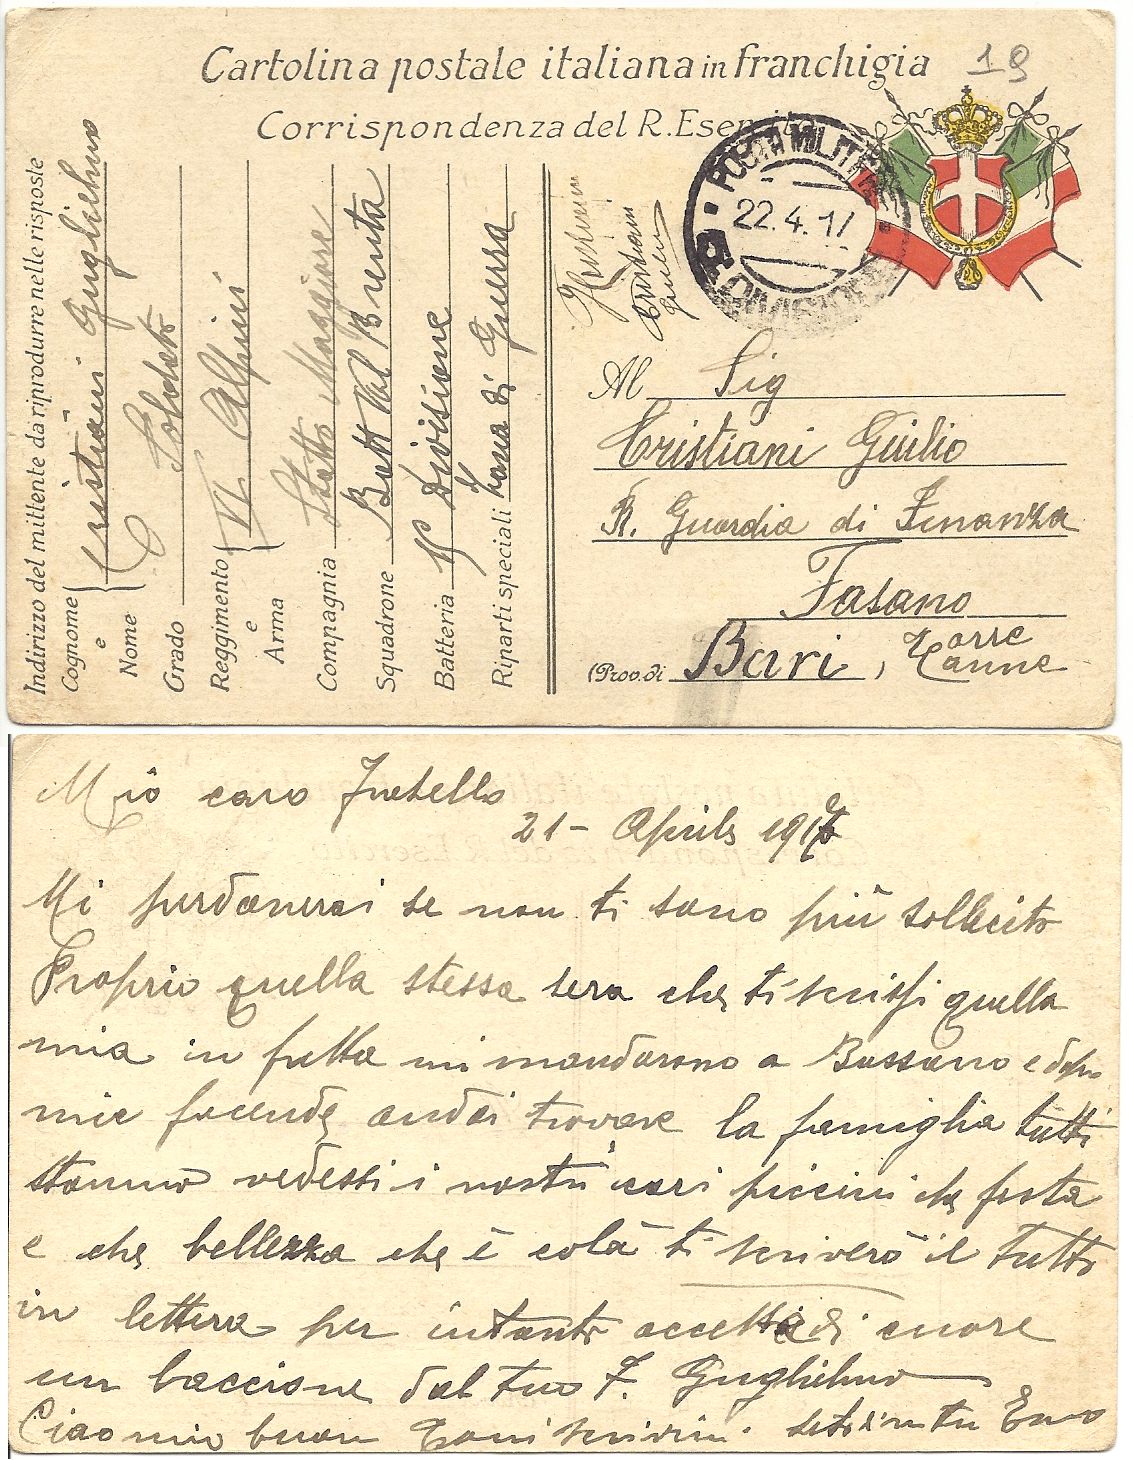 Cartolina postale italiana in franchigia
19
Corrispondenza del R. Esercito
POSTA MILITARE
22.4.17
DIVISIONE
Indirizzo del mittente da riprodurre nelle risposte
Cognome e Nome Cristiani Guglielmo
Grado Soldato
Reggimento e Arma VI Alpini
Compagnia Stato Maggiore
Squadrone Batt Val Brenta
Batteria Divisione
Riparti speciali Zona di Guerra
Cristiani
Al Sig
Cristiani Guilio
R. Guardia di Finanza
Fasano
(Prov. di Bari, Torre
Canne
Mio caro Fratello
21 - Aprile 1917
Mi perdonerai se non ti sono più sollecito
Proprio quella stessa sera che ti scrissi quella
mia in fretta mi mandarono a Bassano e dopo
mie facende andai trovare la famiglia tutti
stanno vedessi i nostri cari piccini che festa
e che bellezza che è colà ti scriverò il tutto
in lettera per intanto accetta di cuore
un baccione dal tuo F. Guglielmo
Ciao mio buon